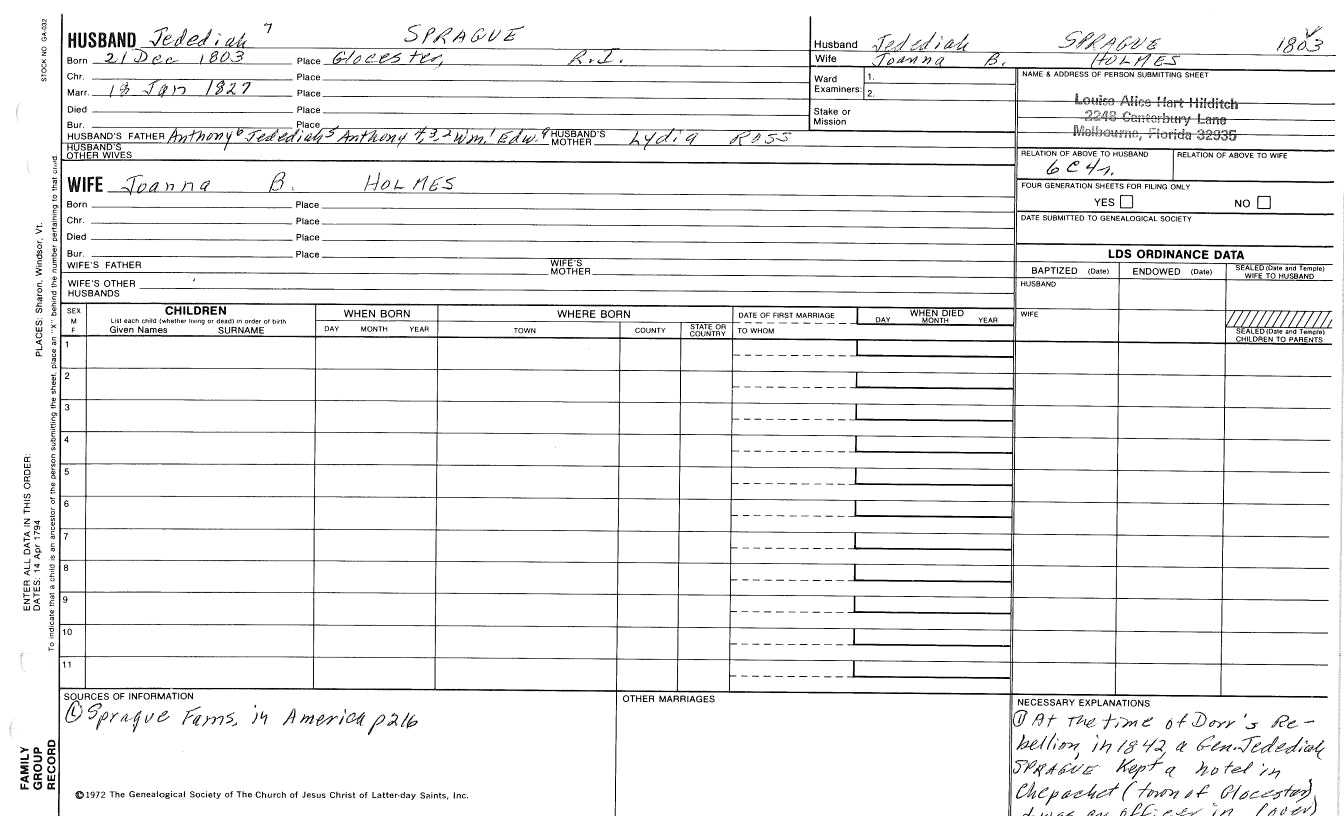 STOCK NO GA-032
HUSBAND Jedediah 7 SPRAGUE
Born 21 Dec 1803 Place Glocester, R.I.
Chr. Place
Marr. 18 Jan 1827 Place
Died Place
Bur. Place
HUSBAND'S FATHER Anthony 6 Jedediah 5 Anthony 4, 3, 2 Wm. 1 Edw. HUSBAND'S MOTHER Lydia ROSS
HUSBAND'S OTHER WIVES
WIFE Joanna B. HOLMES
Born Place
Chr. Place
Died Place
Bur. Place
WIFE'S FATHER WIFE'S MOTHER
WIFE'S OTHER HUSBANDS
Husband Jedediah SPRAGUE 1803
Wife Joanna B. HOLMES
Ward Examiners: 1.
2.
Stake or Mission
NAME & ADDRESS OF PERSON SUBMITTING SHEET
Louise Alice Hart Hilditch
2248 Canterbury Lane
Melbourne, Florida 32935
RELATION OF ABOVE TO HUSBAND RELATION OF ABOVE TO WIFE
6C4r.
FOUR GENERATION SHEETS FOR FILING ONLY
YES NO
DATE SUBMITTED TO GENEALOGICAL SOCIETY
LDS ORDINANCE DATA
BAPTIZED (Date) ENDOWED (Date) SEALED (Date and Temple) WIFE TO HUSBAND
HUSBAND
WIFE
SEALED (Date and Temple) CHILDREN TO PARENTS
SEX M F
CHILDREN
List each child (whether living or dead) in order of birth
Given Names SURNAME
WHEN BORN
DAY MONTH YEAR
WHERE BORN
TOWN COUNTY STATE OR COUNTRY
DATE OF FIRST MARRIAGE
TO WHOM
WHEN DIED
DAY MONTH YEAR
1
2
3
4
5
6
7
8
9
10
11
PLACES: Sharon, Windsor, Vt.
ENTER ALL DATA IN THIS ORDER:
DATES: 14 Apr 1794
To indicate that a child is an ancestor of the person submitting the sheet, place an "X" behind the number pertaining to that child.
FAMILY GROUP RECORD
SOURCES OF INFORMATION
① Sprague Fams. in America p216
OTHER MARRIAGES
NECESSARY EXPLANATIONS
① At the time of Dorr's Re-
bellion, in 1842, a Gen. Jedediah
SPRAGUE Kept a hotel in
Chepachet (town of Glocester),
& was an officer in (over)
©1972 The Genealogical Society of The Church of Jesus Christ of Latter-day Saints, Inc.